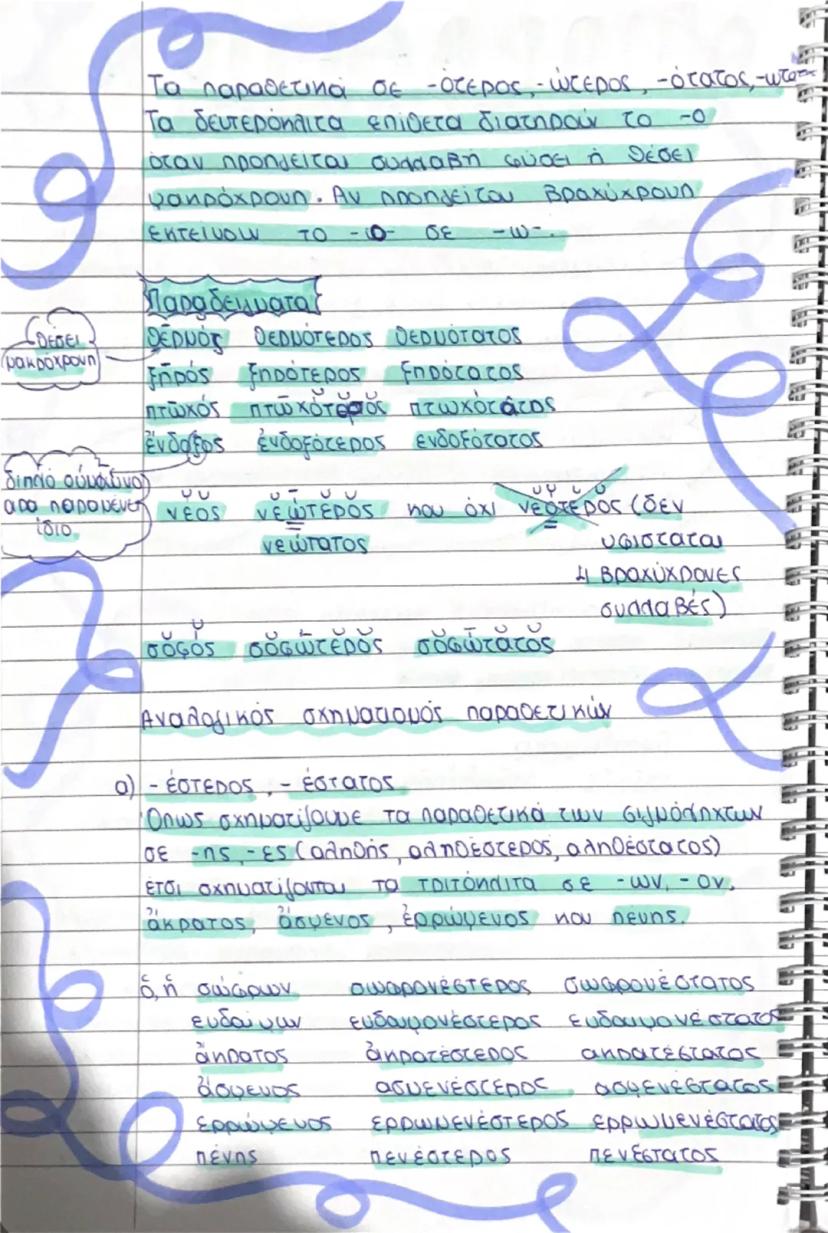 Τα παραθετικά σε -ότερος, -ώτερος, -ότατος, -ωτατ
Τα δευτερόκλιτα επίθετα διατηρούν το -ο
όταν προηγείται συλλαβή φύσει ή θέσει
μακρόχρονη. Αν προηγείται βραχύχρονη
εκτείνουν το -ο- σε -ω-.
Παραδείγματα
θέσει
μακρόχρονη
θερμός θερμότερος θερμότατος
ξηρός ξηρότερος ξηρότατος
πτωχός πτωχότερος πτωχότατος
ένδοξος ἐνδοξότερος ενδοξότατος
διπλό σύμφωνο
αρα παραμένει
ίδιο.
νέος νεώτερος και όχι νεότερος (δεν
νεώτατος υφίσταται
4 βραχύχρονες
συλλαβές)
σοφός σοφώτερος σοφώτατος
Αναλογικός σχηματισμός παραθετικών
α) -έστερος, -έστατος
Όπως σχηματίζουμε τα παραθετικά των σιγμόληκτων
σε -ης, -ες (αληθής, αληθέστερος, αληθέστατος)
έτσι σχηματίζονται τα τριτόκλιτα σε -ων, -ον,
ἄκρατος, ἄσμενος, ἐρρώμενος και πένης.
ὁ, ἡ σώφρων σωφρονέστερος σωφρονέστατος
ευδαίμων ευδαιμονέστερος ευδαιμονέστατος
ἄκρατος ἀκρατέστερος ακρατέστατος
ἄσμενος ασμενέστερος ασμενέστατος
ερρώμενος ερρωμενέστερος ερρωμενέστατος
πένης πενέστερος πενέστατος